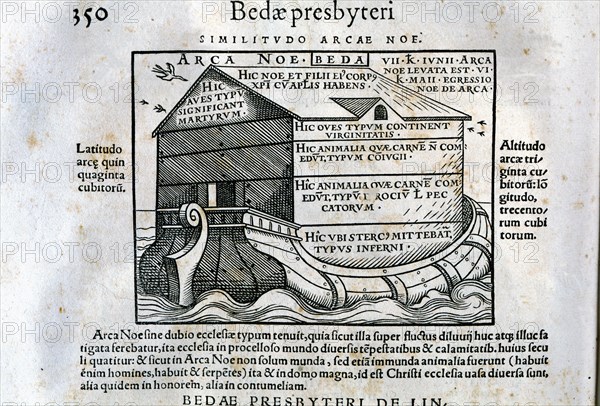 350
Bedæ presbyteri
SIMILITVDO ARCAE NOE.
ARCA NOE. BEDA
VII. K. IVNII. ARCA
NOE LEVATA EST. VI
K. MAII. EGRESSIO
NOE DE ARCA.
HIC NOE ET FILII EIꝰ CORPꝰ
XPI CVAPLIS HABENS.
HIC
AVES TYPV̄
SIGNIFICANT
MARTYRVM.
HIC OVES TYPVM CONTINENT
VIRGINITATIS.
HIC ANIMALIA QVÆ CARNĒ N̄ COM
EDV̄T, TYPVM CŌIVGII.
HIC ANIMALIA QVÆ CARNĒ COM
EDV̄T, PEC
CATORVM.
HIC VBI STERCꝰ MITTEBAT̄,
TYPVS INFERNI.
Latitudo
arcę quin
quaginta
cubitorū.
Altitudo
arcæ tri-
ginta cu-
bitorū: lō
gitudo,
trecento-
rum cubi
torum.
Arca Noe sine dubio ecclesiæ typum tenuit, quia sicut illa super fluctus diluuij huc atq; illuc fa
tigata ferebatur, ita ecclesia in procelloso mundo diuersis tēpestatibus & calamitatib. huius secu
li quatitur: & sicut in Arca Noe non solum munda, sed etiā immunda animalia fuerunt (habuit
enim homines, habuit & serpētes) ita & in domo magna, id est Christi ecclesia uasa diuersa sunt,
alia quidem in honorem, alia in contumeliam.
BEDAE PRESBYTERI DE LIN-
PHOTO12